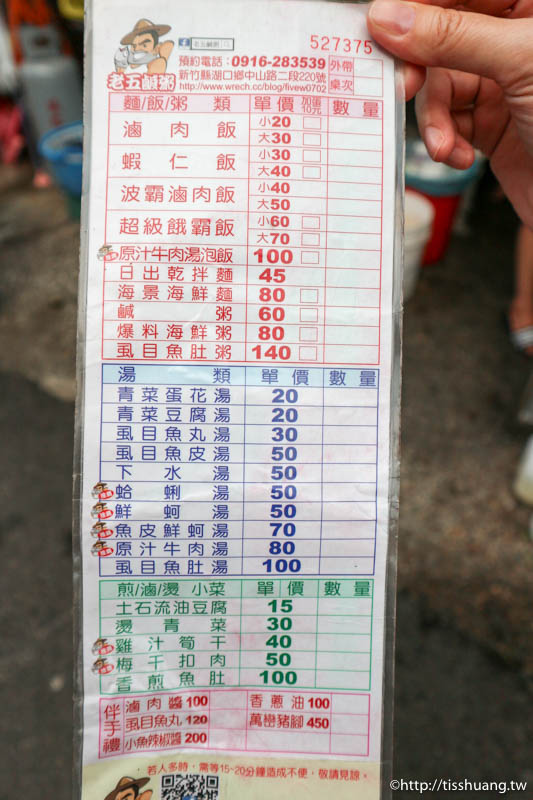 老五鹹粥
527375
預約電話：0916-283539
新竹縣湖口鄉中山路二段220號
http://www.wrech.cc/blog/fivew0702
老五鹹粥
外帶
桌次
麵/飯/粥 類 單價 加起司10元 數量
滷肉飯 小20 大30
蝦仁飯 小30 大40
波霸滷肉飯 小40 大50
超級餓霸飯 小60 大70
原汁牛肉湯泡飯 100
日出乾拌麵 45
海景海鮮麵 80
鹹粥 60
爆料海鮮粥 80
虱目魚肚粥 140
湯類 單價 數量
青菜蛋花湯 20
青菜豆腐湯 20
虱目魚丸湯 30
虱目魚皮湯 50
下水湯 50
蛤蜊湯 50
鮮蚵湯 50
魚皮鮮蚵湯 70
原汁牛肉湯 80
虱目魚肚湯 100
煎/滷/燙 小菜 單價 數量
土石流油豆腐 15
燙青菜 30
雞汁筍干 40
梅干扣肉 50
香煎魚肚 100
伴手禮
滷肉醬 100 香蔥油 100
虱目魚丸 120 萬巒豬腳 450
小魚辣椒醬 200
若人多時，需等15~20分鐘造成不便，敬請見諒。
©http://tisshuang.tw